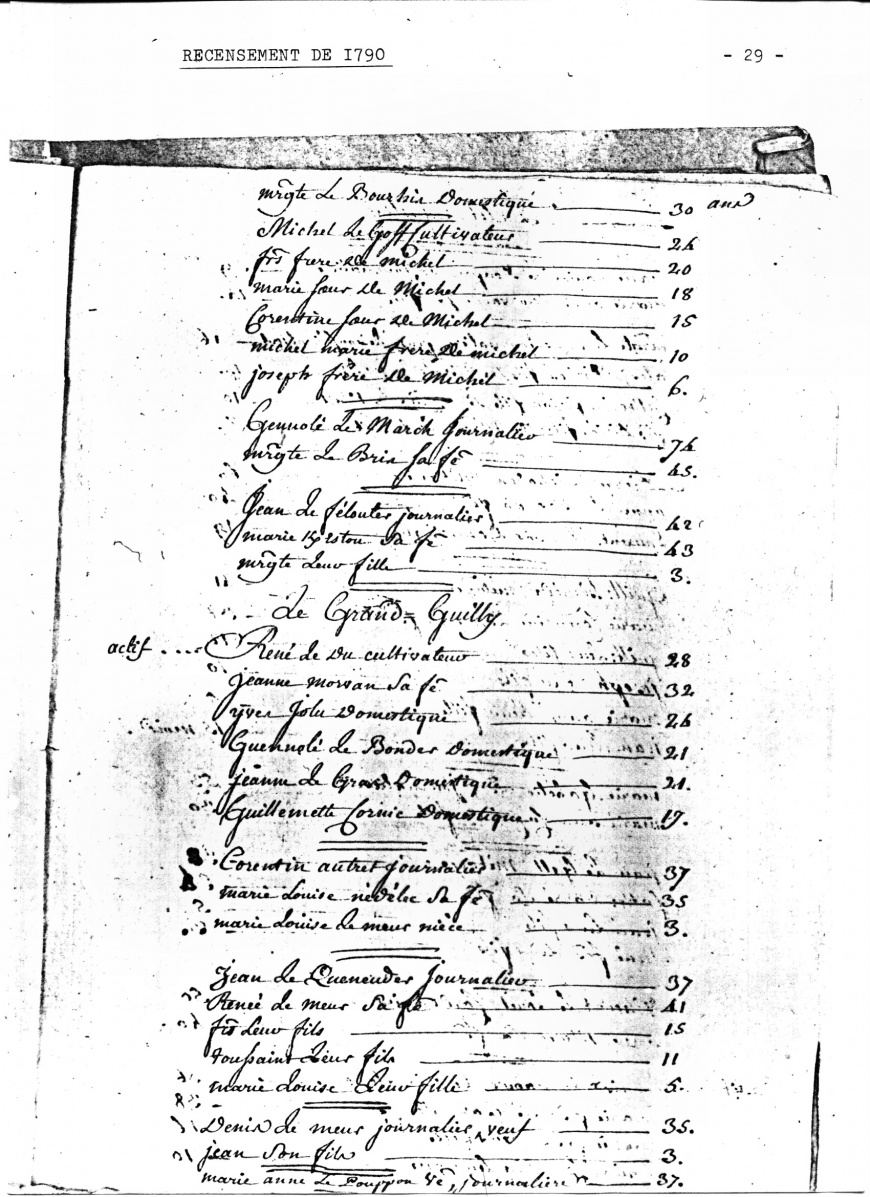 RECENSEMENT DE 1790
- 29 -
mgte Le Bourhis Domestique 30 ans
Michel Le Goff Cultivateur 24
frs frere De michel 20
marie sœur De Michel 18
Corentine sœur De Michel 15
michel marie frere De michel 10
joseph frere De Michel 6.
Gennolé Le March Journalier 74
mgte Le Bris sa fe 45.
Jean Le féloutes journalier 42
marie sa fe 43
mgte Leur fille 3.
Le Grand = Guilly
actif .... René Le Du cultivateur 28
jeanne morvan sa fe 32
yves Jolu Domestique 24
Guennolé Le Bondes Domestique 21
jeanne Le Gras Domestique 21.
Guillemette Cornic Domestique 19.
Corentin autret journalier 37
marie Louise nédélec sa fe 35
marie Louise Le meur nièce 3.
Jean Le Queneudes Journalier 37
Renée Le meur sa fe 41
frs Leur fils 15
toussaint Leur fils 11
marie Louise Leur fille 5.
Denis Le meur journalier veuf 35.
jean son fils 3.
marie anne Le Pouppon ve, journaliere 37.